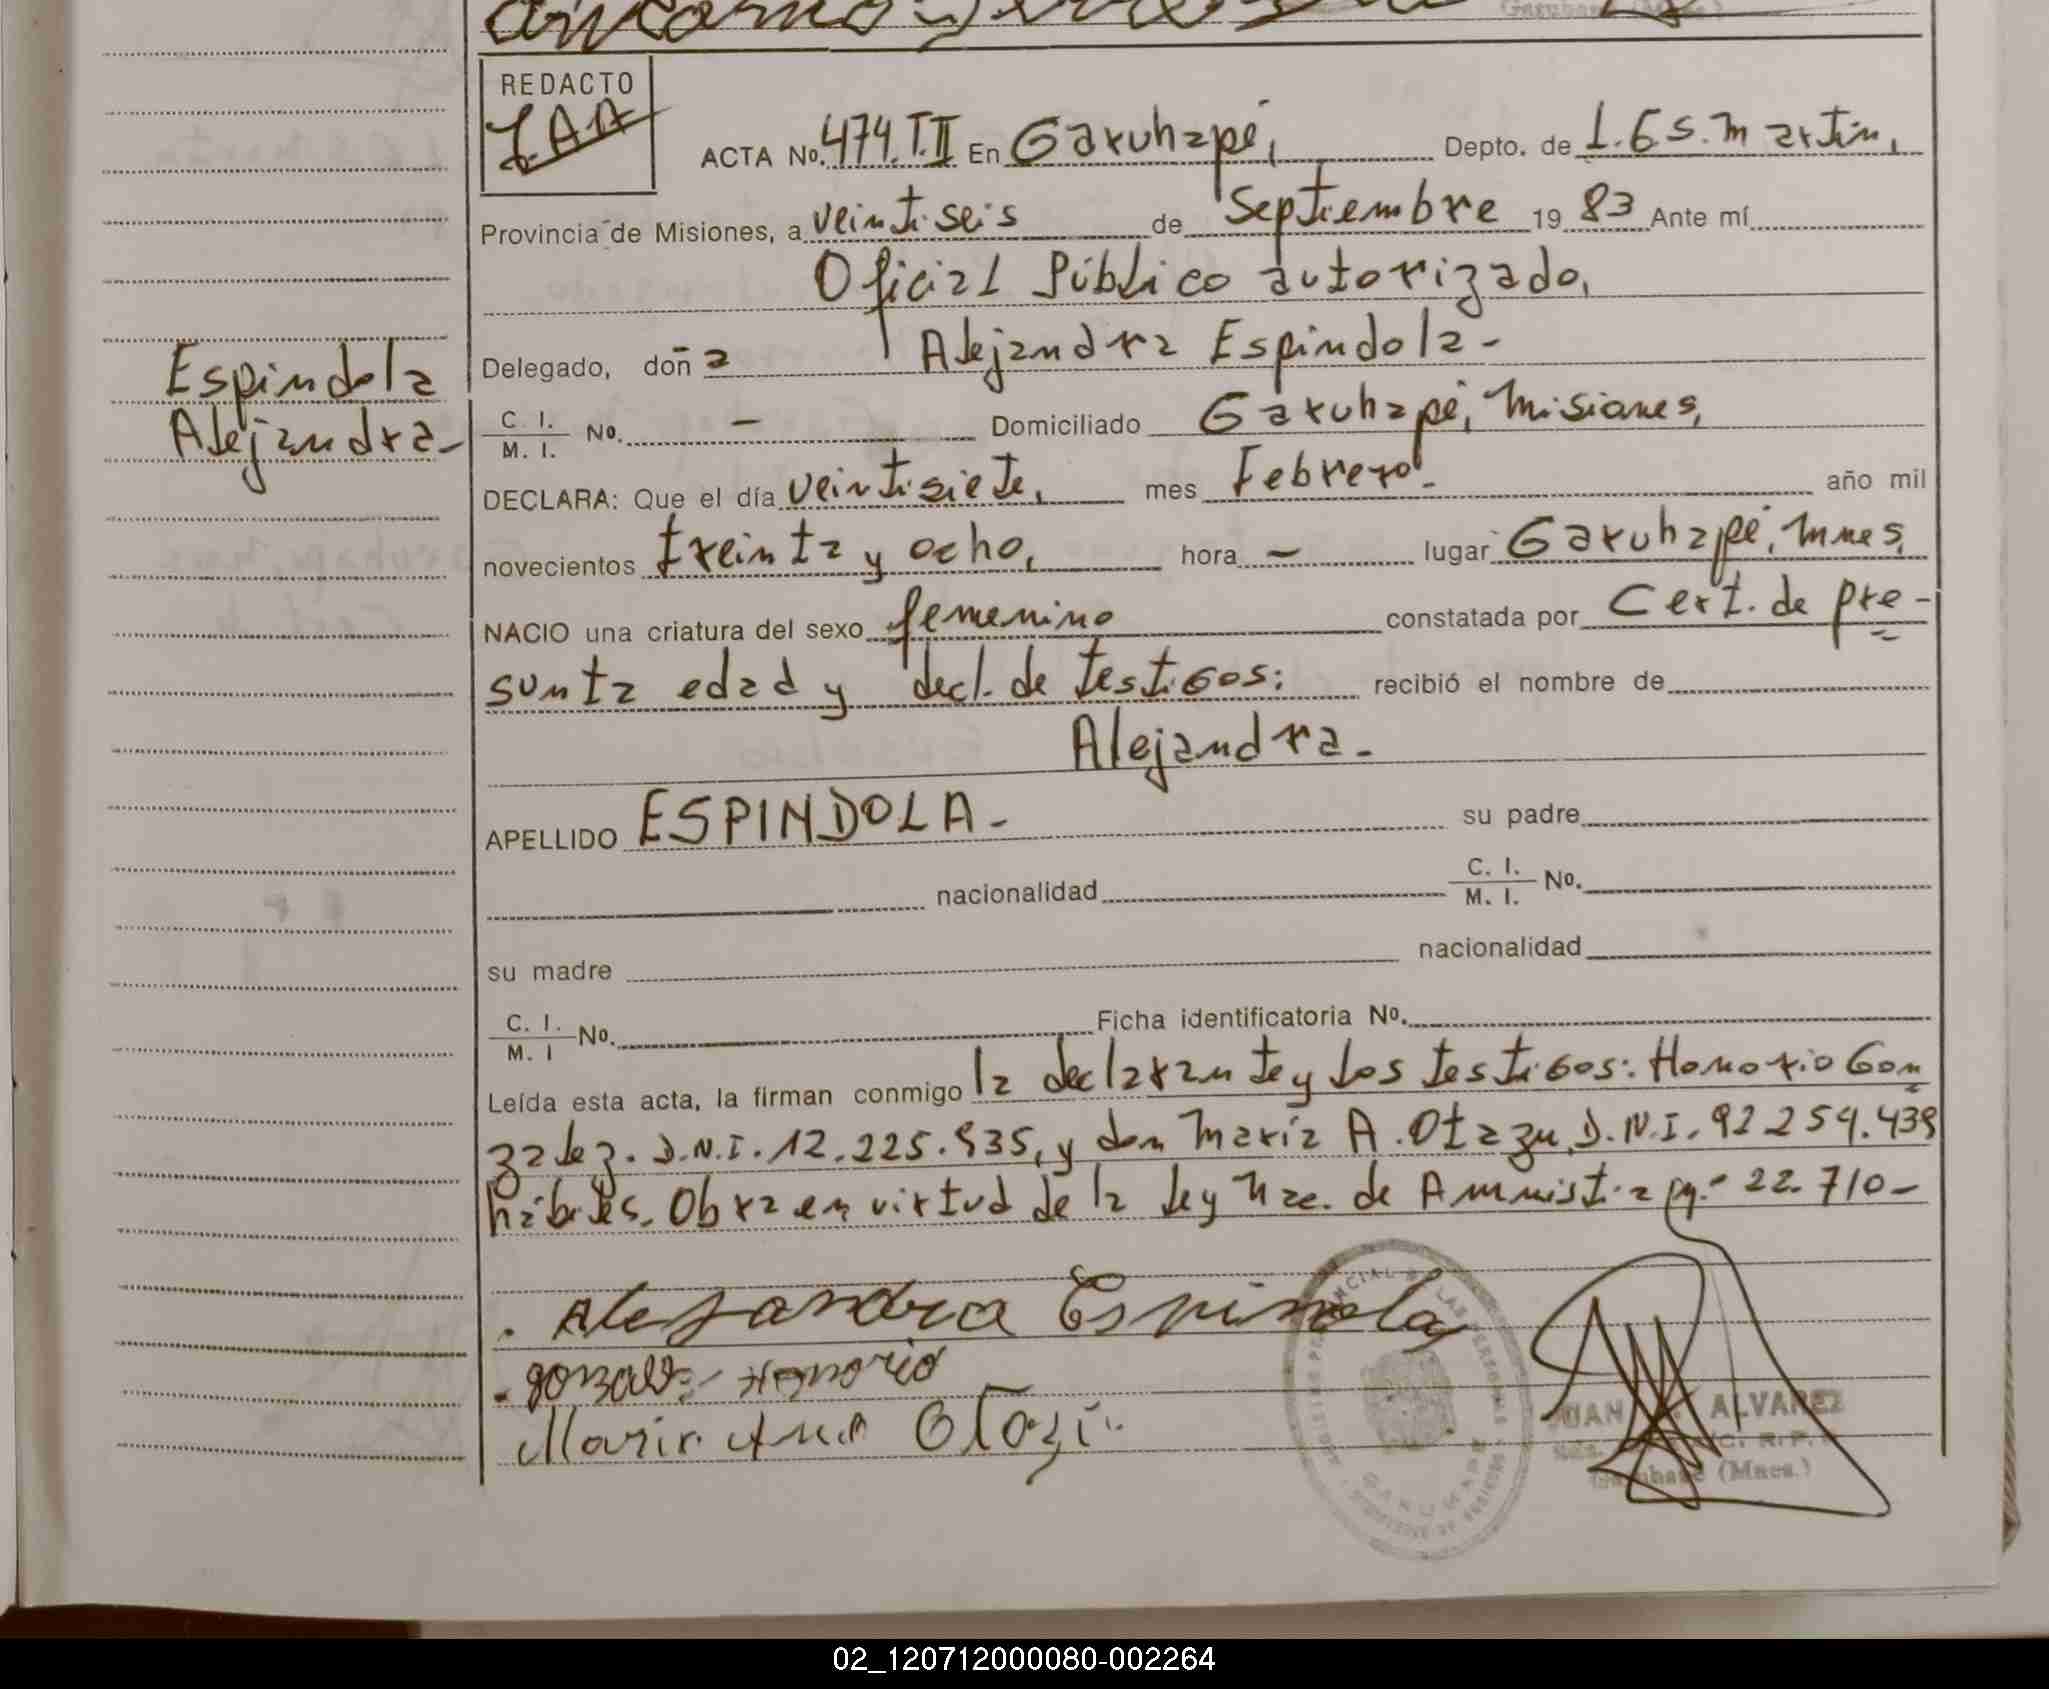 REDACTO
JAA
ACTA No. 474.T.II En Garuhapé, Depto. de L.G.S.Martín,
Provincia de Misiones, a veintiseis de Septiembre 19 83 Ante mí
Oficial Público autorizado,
Delegado, doña Alejandra Espindola-
Espindola
Alejandra-
C. I. / M. I. No. - Domiciliado Garuhapé, Misiones,
DECLARA: Que el día veintisiete, mes Febrero- año mil
novecientos treinta y ocho, hora - lugar Garuhapé, Mnes,
NACIO una criatura del sexo femenino constatada por Cert. de pre-
sunta edad y decl. de testigos: recibió el nombre de
Alejandra-
APELLIDO ESPINDOLA- su padre
nacionalidad C. I. / M. I. No.
su madre nacionalidad
C. I. / M. I No. Ficha identificatoria No.
Leída esta acta, la firman conmigo la declarante y los testigos: Honorio Gon
zalez. D.N.I. 12.225.935, y don María A. Otazu, D.N.I. 92 254.439
hábiles. Obra en virtud de la ley Nac. de Amnistia 22.710-
Alejandra Espinola
Gonzalez Honorio
Maria Ana
JUAN ALVAREZ
Garuhapé (Mnes.)
GARUHAPE
02_120712000080-002264